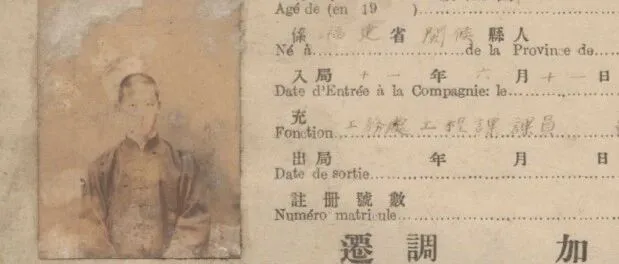 Agé de (en 19 )
係 福建 省 閩侯 縣人
Né à de la Province de
入局 十一 年 六 月 十一 日
Date d'Entrée à la Compagnie: le
充
Fonction 工務處工程課課員
出局 年 月 日
Date de sortie
註冊號數
Numéro matricule
遷調加